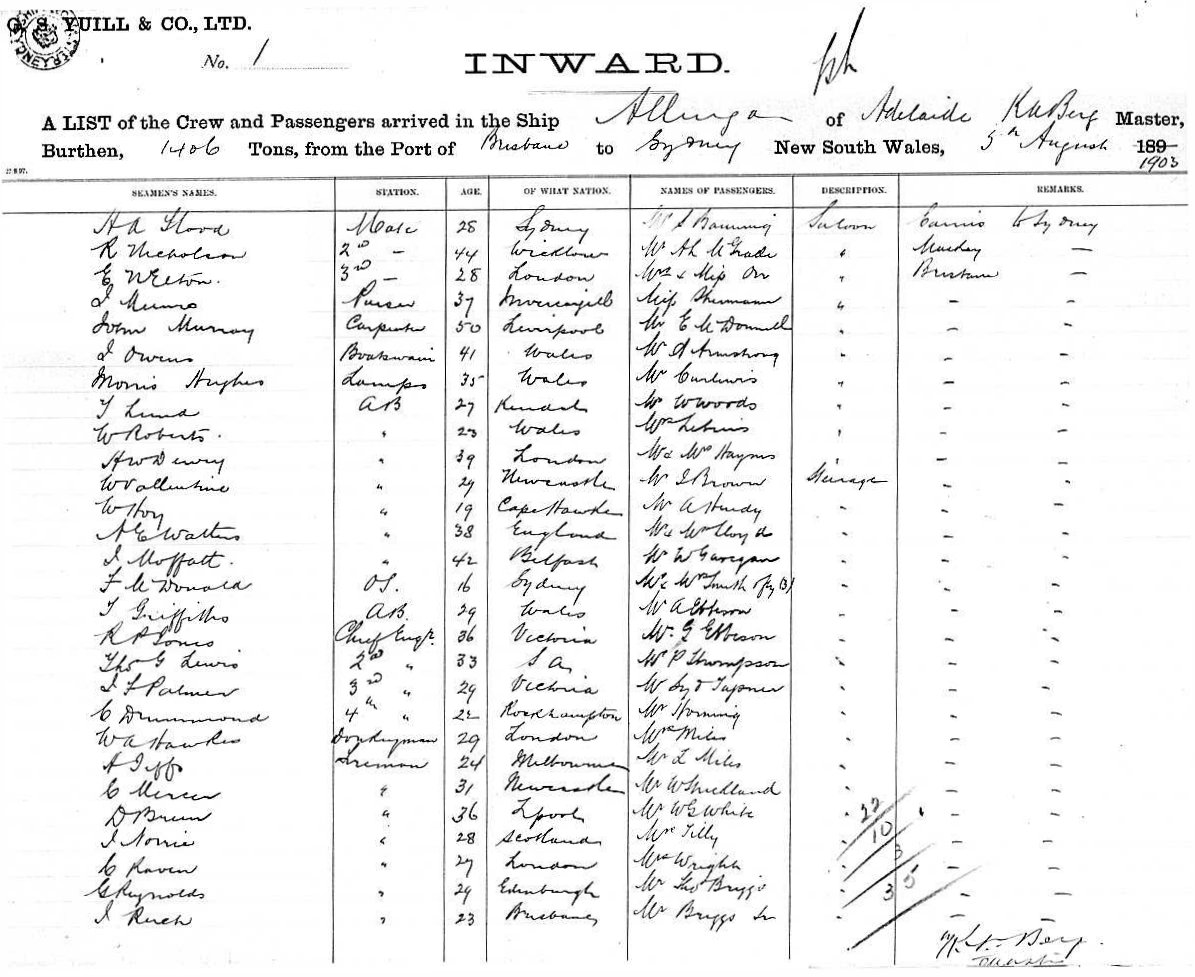 G. S. YUILL & CO., LTD.
No. 1
INWARD.
A LIST of the Crew and Passengers arrived in the Ship of Adelaide Master,
Burthen, 1406 Tons, from the Port of Brisbane to Sydney New South Wales, 5th August 189
1903
SEAMEN'S NAMES. STATION. AGE. OF WHAT NATION. NAMES OF PASSENGERS. DESCRIPTION. REMARKS.
H A Flood Mate 28 Sydney Saloon to Sydney
R Nicholson 2nd - 44 Wicklow Mr " Mackay —
3rd - 28 London Mrs & Miss Orr " Brisbane —
J Munro Purser 37 Invercargill Miss " - -
John Murray Carpenter 50 Liverpool Mr E McDonnell " - -
J Owens Boatswain 41 Wales Mr A Armstrong " - -
Morris Hughes Lamps 35 Wales Mr Curlewis " - -
T Lund AB 27 Kendal Mr W Woods " - -
W Roberts. " 23 Wales " - -
H W Dewey " 39 London Mr & Mrs Haynes - -
W Vallentine " 29 Newcastle Mr J Brown Steerage - -
W Hoy " 19 Cape Hawke Mr A - - -
A E Walters " 38 England Mr & Mrs Lloyd - - -
J Moffatt. " 42 Belfast Mr W - - -
F McDonald OS. 16 Sydney Mr & Mrs Smith - - -
T Griffiths AB. 29 Wales Mr A Ebbeson - - -
R P Jones Chief Engr. 36 Victoria Mr G Ebbeson - - -
Thos G Lewis 2nd " 33 S A. Mr P Thompson - - -
J F Palmer 3rd " 29 Victoria Mr Syd Tapner - - -
C Drummond 4th " 22 Rockhampton Mr Horning - - -
W A Hawkes Donkeyman 29 London Mrs Miles - - -
Fireman 24 Melbourne Mr L Miles - - -
C Mercer " 31 Newcastle Mr W Strickland - - -
" 36 L'pool Mr W G White - 22 - -
J Norrie " 28 Scotland Mrs Tilly - 10 - -
C Raven " 27 London Mrs Wright - 3 - -
G Reynolds " 29 Edinburgh Mr Thos Briggs - 3 5 - -
J " 23 Brisbane Mr Briggs Jr - - -
Berg.